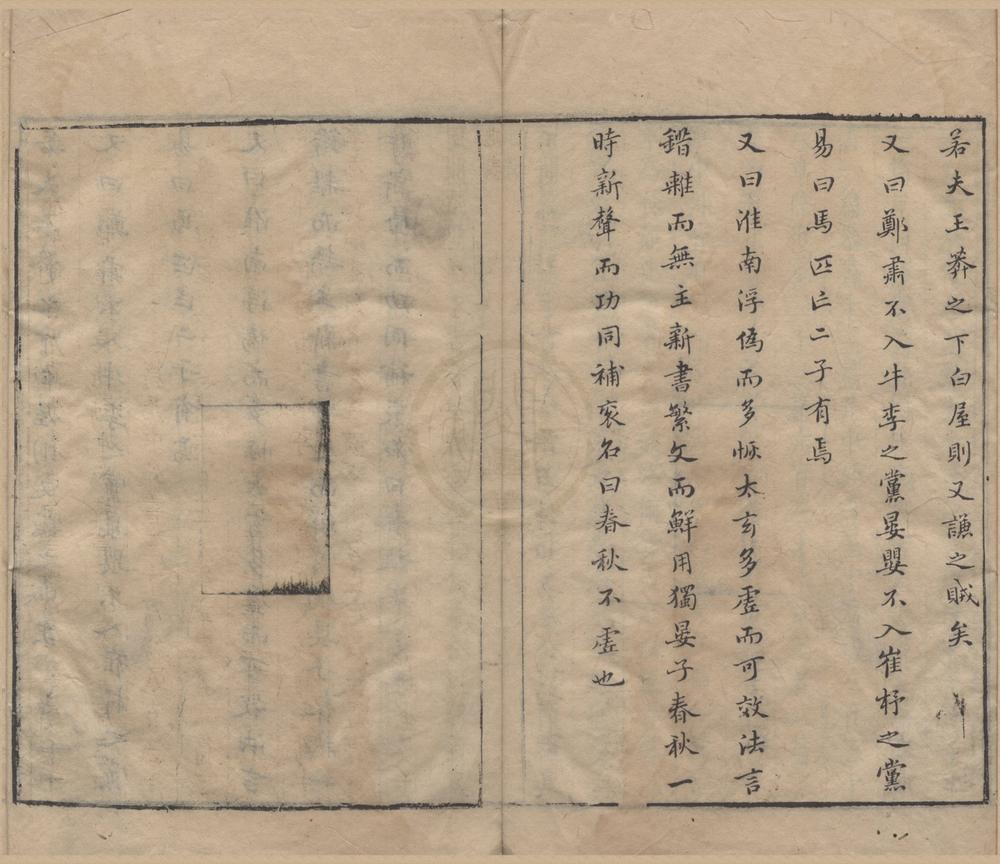 若夫王莽之下白屋則又謙之賊矣
又曰鄭肅不入牛李之黨晏嬰不入崔杼之黨
易曰馬匹亡二子有焉
又曰淮南浮偽而多恢太玄多虛而可效法言
錯雜而無主新書繁文而鮮用獨晏子春秋一
時新聲而功同補衮名曰春秋不虛也